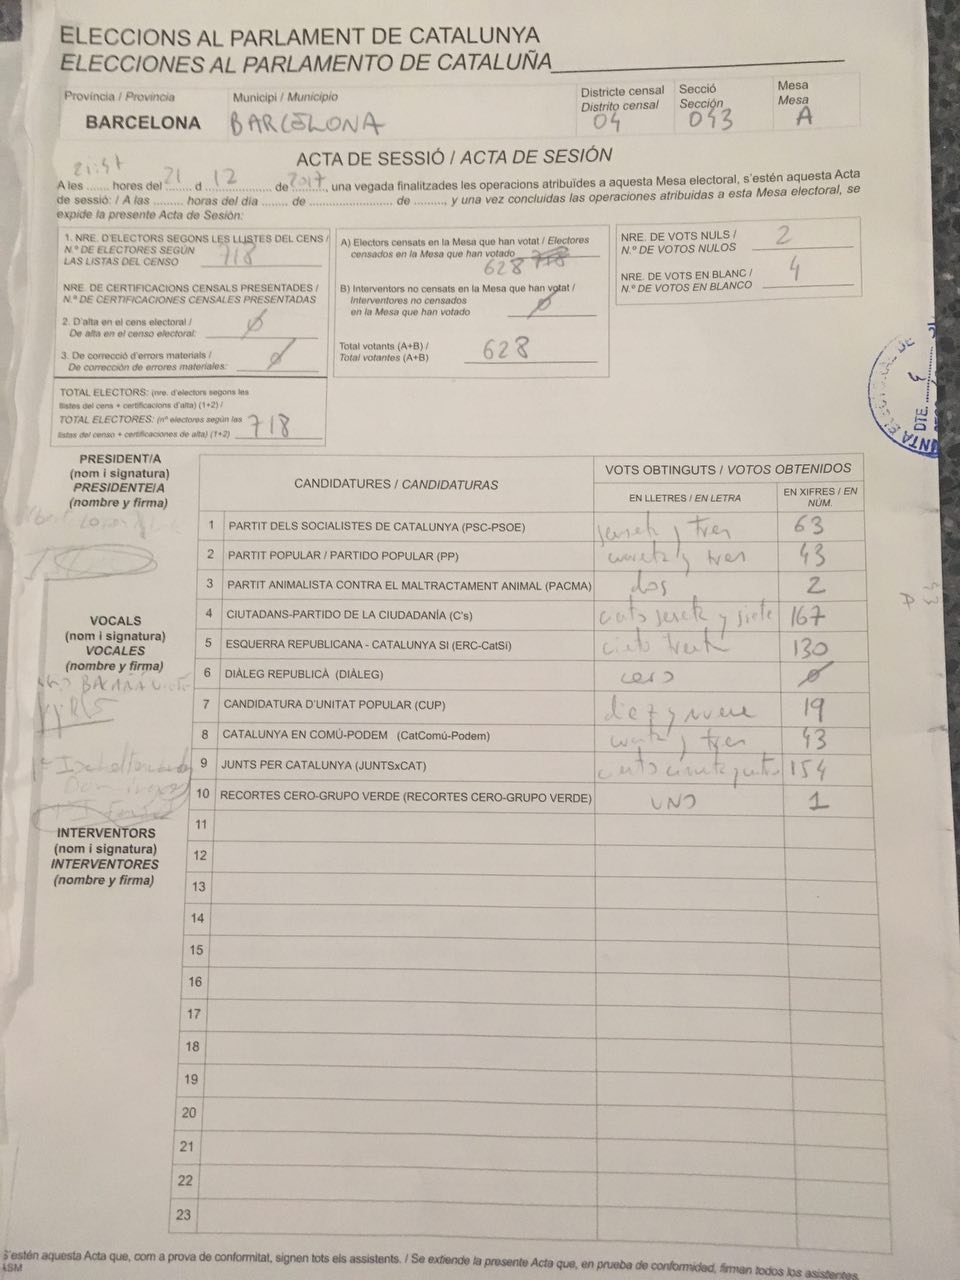 ELECCIONS AL PARLAMENT DE CATALUNYA
ELECCIONES AL PARLAMENTO DE CATALUÑA
Província / Provincia
BARCELONA
Municipi / Municipio
BARCELONA
Districte censal
Distrito censal
04
Secció
Sección
043
Mesa
Mesa
A
ACTA DE SESSIÓ / ACTA DE SESIÓN
A les 21:47 hores del 21 d 12 de 2017, una vegada finalitzades les operacions atribuïdes a aquesta Mesa electoral, s'estén aquesta Acta
de sessió: / A las ......... horas del día ....... de ........................ de ........., y una vez concluidas las operaciones atribuidas a esta Mesa electoral, se
expide la presente Acta de Sesión:
1. NRE. D'ELECTORS SEGONS LES LLISTES DEL CENS /
N.º DE ELECTORES SEGÚN
LAS LISTAS DEL CENSO 718
NRE. DE CERTIFICACIONS CENSALS PRESENTADES /
N.º DE CERTIFICACIONES CENSALES PRESENTADAS
2. D'alta en el cens electoral /
De alta en el censo electoral: Ø
3. De correcció d'errors materials /
De corrección de errores materiales: Ø
TOTAL ELECTORS: (nre. d'electors segons les
llistes del cens + certificacions d'alta) (1+2) /
TOTAL ELECTORES: (nº electores según las
listas del censo + certificaciones de alta) (1+2) 718
A) Electors censats en la Mesa que han votat / Electores
censados en la Mesa que han votado 718
628
B) Interventors no censats en la Mesa que han votat /
Interventores no censados
en la Mesa que han votado Ø
Total votants (A+B) /
Total votantes (A+B) 628
NRE. DE VOTS NULS /
N.º DE VOTOS NULOS 2
NRE. DE VOTS EN BLANC /
N.º DE VOTOS EN BLANCO 4
DTE. 4
PRESIDENT/A
(nom i signatura)
PRESIDENTE/A
(nombre y firma)
VOCALS
(nom i signatura)
VOCALES
(nombre y firma)
INTERVENTORS
(nom i signatura)
INTERVENTORES
(nombre y firma)
CANDIDATURES / CANDIDATURAS
VOTS OBTINGUTS / VOTOS OBTENIDOS
EN LLETRES / EN LETRA
EN XIFRES / EN NÚM.
1 PARTIT DELS SOCIALISTES DE CATALUNYA (PSC-PSOE) y tres 63
2 PARTIT POPULAR / PARTIDO POPULAR (PP) y tres 43
3 PARTIT ANIMALISTA CONTRA EL MALTRACTAMENT ANIMAL (PACMA) dos 2
4 CIUTADANS-PARTIDO DE LA CIUDADANÍA (C's) y siete 167
5 ESQUERRA REPUBLICANA - CATALUNYA SI (ERC-CatSí) 130
6 DIÀLEG REPUBLICÀ (DIÀLEG) cero Ø
7 CANDIDATURA D'UNITAT POPULAR (CUP) diez y nueve 19
8 CATALUNYA EN COMÚ-PODEM (CatComú-Podem) y tres 43
9 JUNTS PER CATALUNYA (JUNTSxCAT) 154
10 RECORTES CERO-GRUPO VERDE (RECORTES CERO-GRUPO VERDE) UNO 1
11
12
13
14
15
16
17
18
19
20
21
22
23
S'estén aquesta Acta que, com a prova de conformitat, signen tots els assistents. / Se extiende la presente Acta que, en prueba de conformidad, firman todos los asistentes.